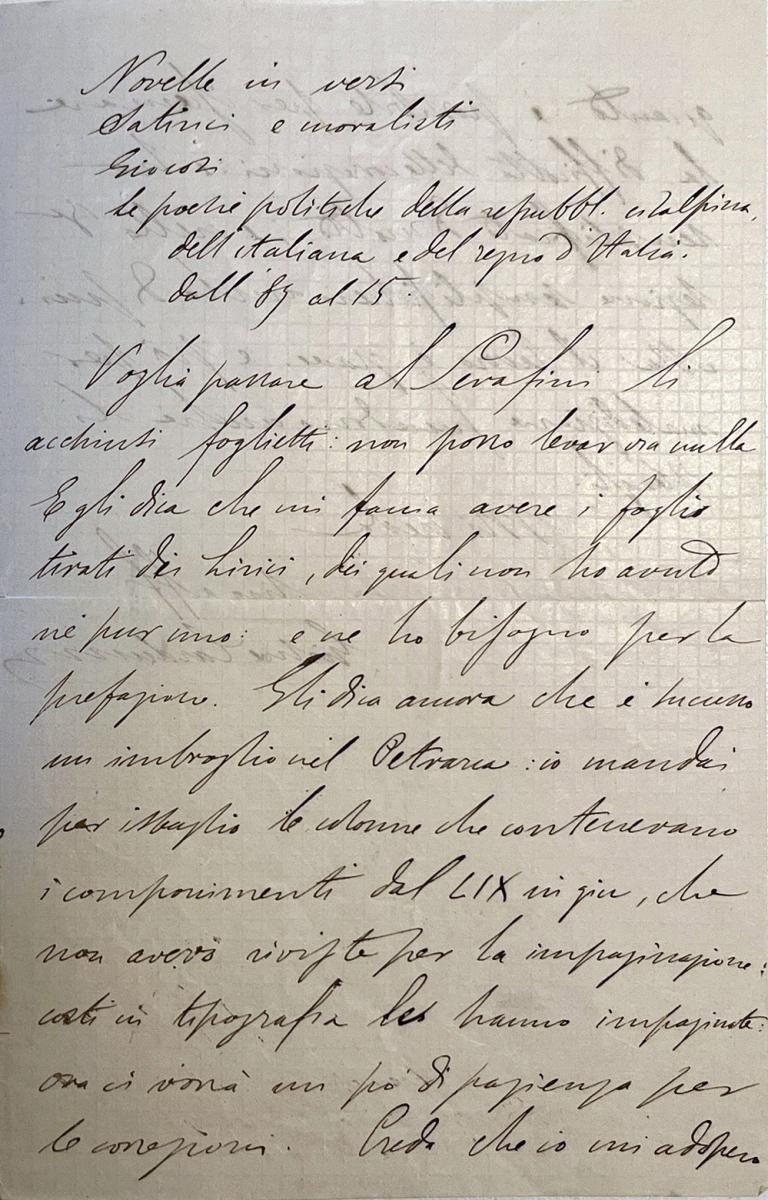 Novelle in versi
Satirici e moralisti
Giocosi
le poesie politiche della repubbl. cisalpina,
dell'italiana e del regno d'Italia.
dall' 89 al 15.
Voglia passare al Serafini li
acchiusi foglietti: non posso levar ora nulla
E gli dica che mi faccia avere i foglio
tirati dei Lirici, dei quali non ho avuto
nè pur uno: e ne ho bisogno per la
prefazione. Gli dica ancora che è successo
un imbroglio nel Petrarca: io mandai
per isbaglio le colonne che contenevano
i componimenti dal LIX in giu, che
non avevo riviste per la impaginazione:
costì in tipografia les hanno impaginate:
ora ci vorrà un po' di pazienza per
le correzioni. Creda che io mi adopero